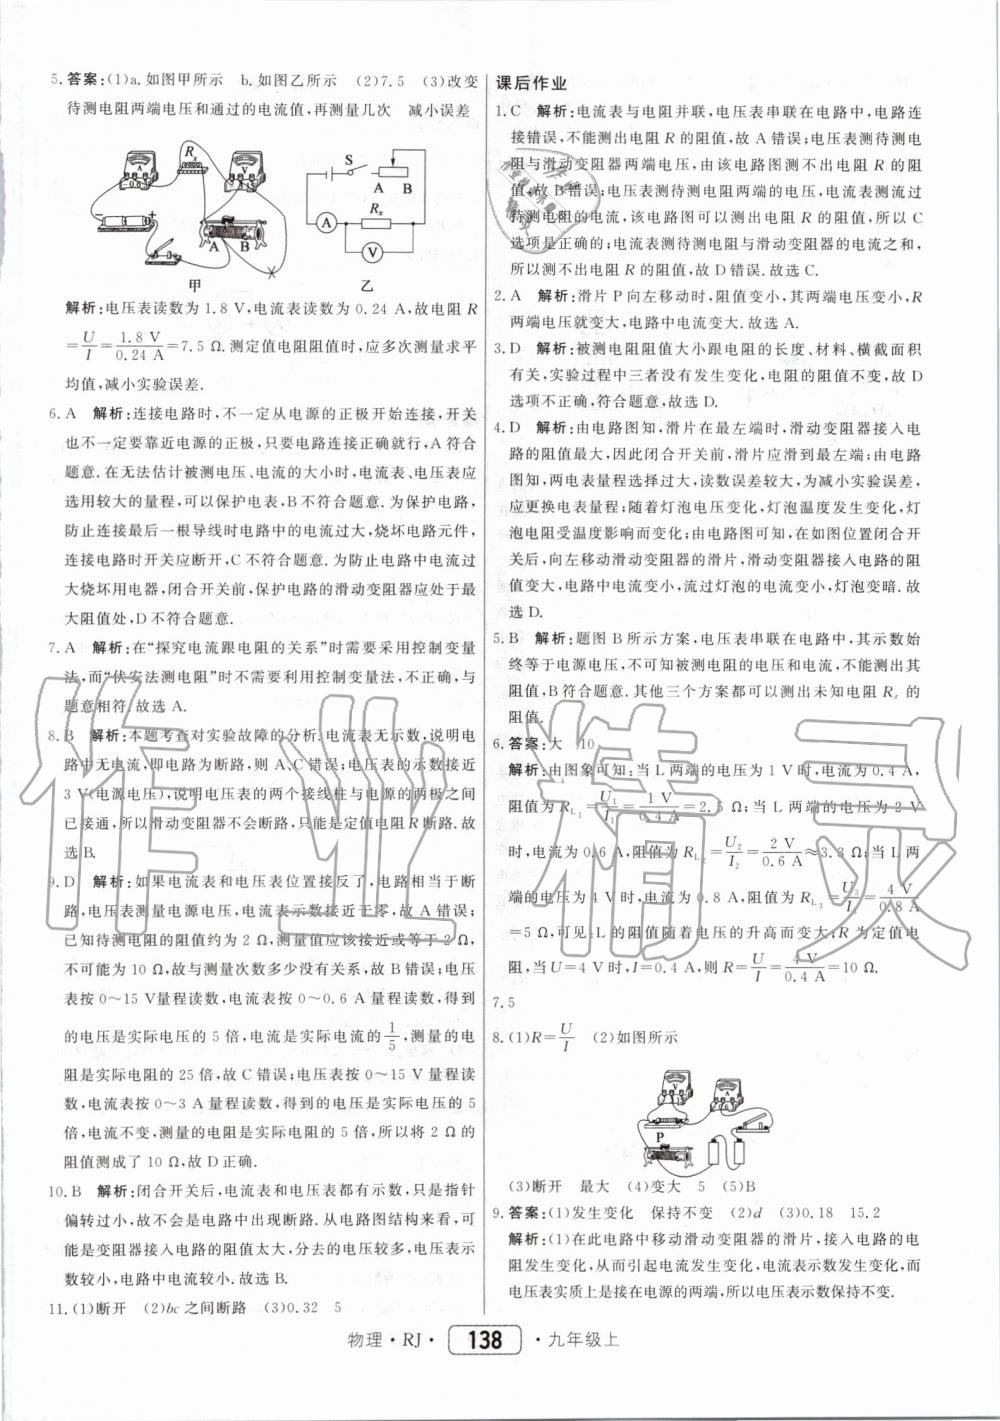 5.答案:(1)a.如图甲所示 b.如图乙所示 (2)7.5 (3)改变
待测电阻两端电压和通过的电流值,再测量几次 减小误差
Rx
A
0.6
V
A B
甲
S
A B
A
Rx
V
乙
解析:电压表读数为 1.8 V,电流表读数为 0.24 A,故电阻 R
=U/I=1.8 V/0.24 A=7.5 Ω.测定值电阻阻值时,应多次测量求平
均值,减小实验误差.
6.A 解析:连接电路时,不一定从电源的正极开始连接,开关
也不一定要靠近电源的正极,只要电路连接正确就行,A 符合
题意.在无法估计被测电压、电流的大小时,电流表、电压表应
选用较大的量程,可以保护电表,B 不符合题意.为保护电路,
防止连接最后一根导线时电路中的电流过大,烧坏电路元件,
连接电路时开关应断开,C 不符合题意.为防止电路中电流过
大烧坏用电器,闭合开关前,保护电路的滑动变阻器应处于最
大阻值处,D 不符合题意.
7.A 解析:在“探究电流跟电阻的关系”时需要采用控制变量
法,而“伏安法测电阻”时不需要利用控制变量法,不正确,与
题意相符.故选 A.
8.B 解析:本题考查对实验故障的分析.电流表无示数,说明电
路中无电流,即电路为断路,则 A、C 错误;电压表的示数接近
3 V(电源电压),说明电压表的两个接线柱与电源的两极之间
已接通,所以滑动变阻器不会断路,只能是定值电阻R断路.故
选 B.
9.D 解析:如果电流表和电压表位置接反了,电路相当于断
路,电压表测量电源电压,电流表示数接近于零,故 A 错误;
已知待测电阻的阻值约为 2 Ω,测量值应该接近或等于 2 Ω,
不可能为 10 Ω,故与测量次数多少没有关系,故 B 错误;电压
表按 0~15 V量程读数,电流表按 0~0.6 A 量程读数,得到
的电压是实际电压的 5 倍,电流是实际电流的1/5,测量的电
阻是实际电阻的 25 倍,故 C 错误;电压表按 0~15 V 量程读
数,电流表按 0~3 A 量程读数,得到的电压是实际电压的 5
倍,电流不变,测量的电阻是实际电阻的 5 倍,所以将 2 Ω 的
电阻测成了 10 Ω,故 D 正确.
10.B 解析:闭合开关后,电流表和电压表都有示数,只是指针
偏转过小,故不会是电路中出现断路.从电路图结构来看,可
能是变阻器接入电路的阻值太大,分去的电压较多,电压表示
数较小,电路中电流较小.故选 B.
11.(1)断开 (2)bc 之间断路 (3)0.32 5
课后作业
1.C 解析:电流表与电阻并联,电压表串联在电路中,电路连
接错误,不能测出电阻 R 的阻值,故 A 错误;电压表测待测电
阻与滑动变阻器两端电压,由该电路图测不出电阻 R 的阻
值,故 B 错误;电压表测待测电阻两端的电压,电流表测流过
待测电阻的电流,该电路图可以测出电阻 R 的阻值,所以 C
选项是正确的;电流表测待测电阻与滑动变阻器的电流之和,
所以测不出电阻 R 的阻值,故 D 错误.故选 C.
2.A 解析:滑片 P 向左移动时,阻值变小,其两端电压变小,R
两端电压就变大,电路中电流变大.故选 A.
3.D 解析:被测电阻阻值大小跟电阻的长度、材料、横截面积
有关,实验过程中三者没有发生变化,电阻的阻值不变,故 D
选项不正确,符合题意.故选 D.
4.D 解析:由电路图知,滑片在最左端时,滑动变阻器接入电
路的阻值最大,因此闭合开关前,滑片应滑到最左端;由电路
图知,两电表量程选择过大,读数误差较大,为减小实验误差,
应更换电表量程;随着灯泡电压变化,灯泡温度发生变化,灯
泡电阻受温度影响而变化;由电路图知,在如图位置闭合开
关后,向左移动滑动变阻器的滑片,滑动变阻器接入电路的阻
值变大,电路中电流变小,流过灯泡的电流变小,灯泡变暗.故
选 D.
5.B 解析:题图 B 所示方案,电压表串联在电路中,其示数始
终等于电源电压,不可知被测电阻的电压和电流,不能测出其
阻值,B 符合题意.其他三个方案都可以测出未知电阻 Rx 的
阻值.
6.答案:大 10
解析:由图象可知:当 L 两端的电压为 1 V 时,电流为 0.4 A,
阻值为 RL1=U1/I1=1 V/0.4 A=2.5 Ω;当 L 两端的电压为 2 V
时,电流为 0.6 A,阻值为 RL2=U2/I2=2 V/0.6 A≈3.3 Ω;当 L 两
端的电压为 4 V 时,电流为 0.8 A,阻值为 RL3=U3/I3=4 V/0.8 A
=5 Ω,可见,L 的阻值随着电压的升高而变大;R 为定值电
阻,当 U=4 V 时,I=0.4 A,则 R=U/I=4 V/0.4 A=10 Ω.
7.5
8.(1)R=U/I (2)如图所示
V
A
P
(3)断开 最大 (4)变大 5 (5)B
9.答案:(1)发生变化 保持不变 (2)d (3)0.18 15.2
解析:(1)在此电路中移动滑动变阻器的滑片,接入电路的电
阻发生变化,从而引起电流发生变化,电流表示数发生变化;而
电压表实质上是接在电源的两端,所以电压表示数保持不变.
物理·RJ· 138 ·九年级上
作业精灵